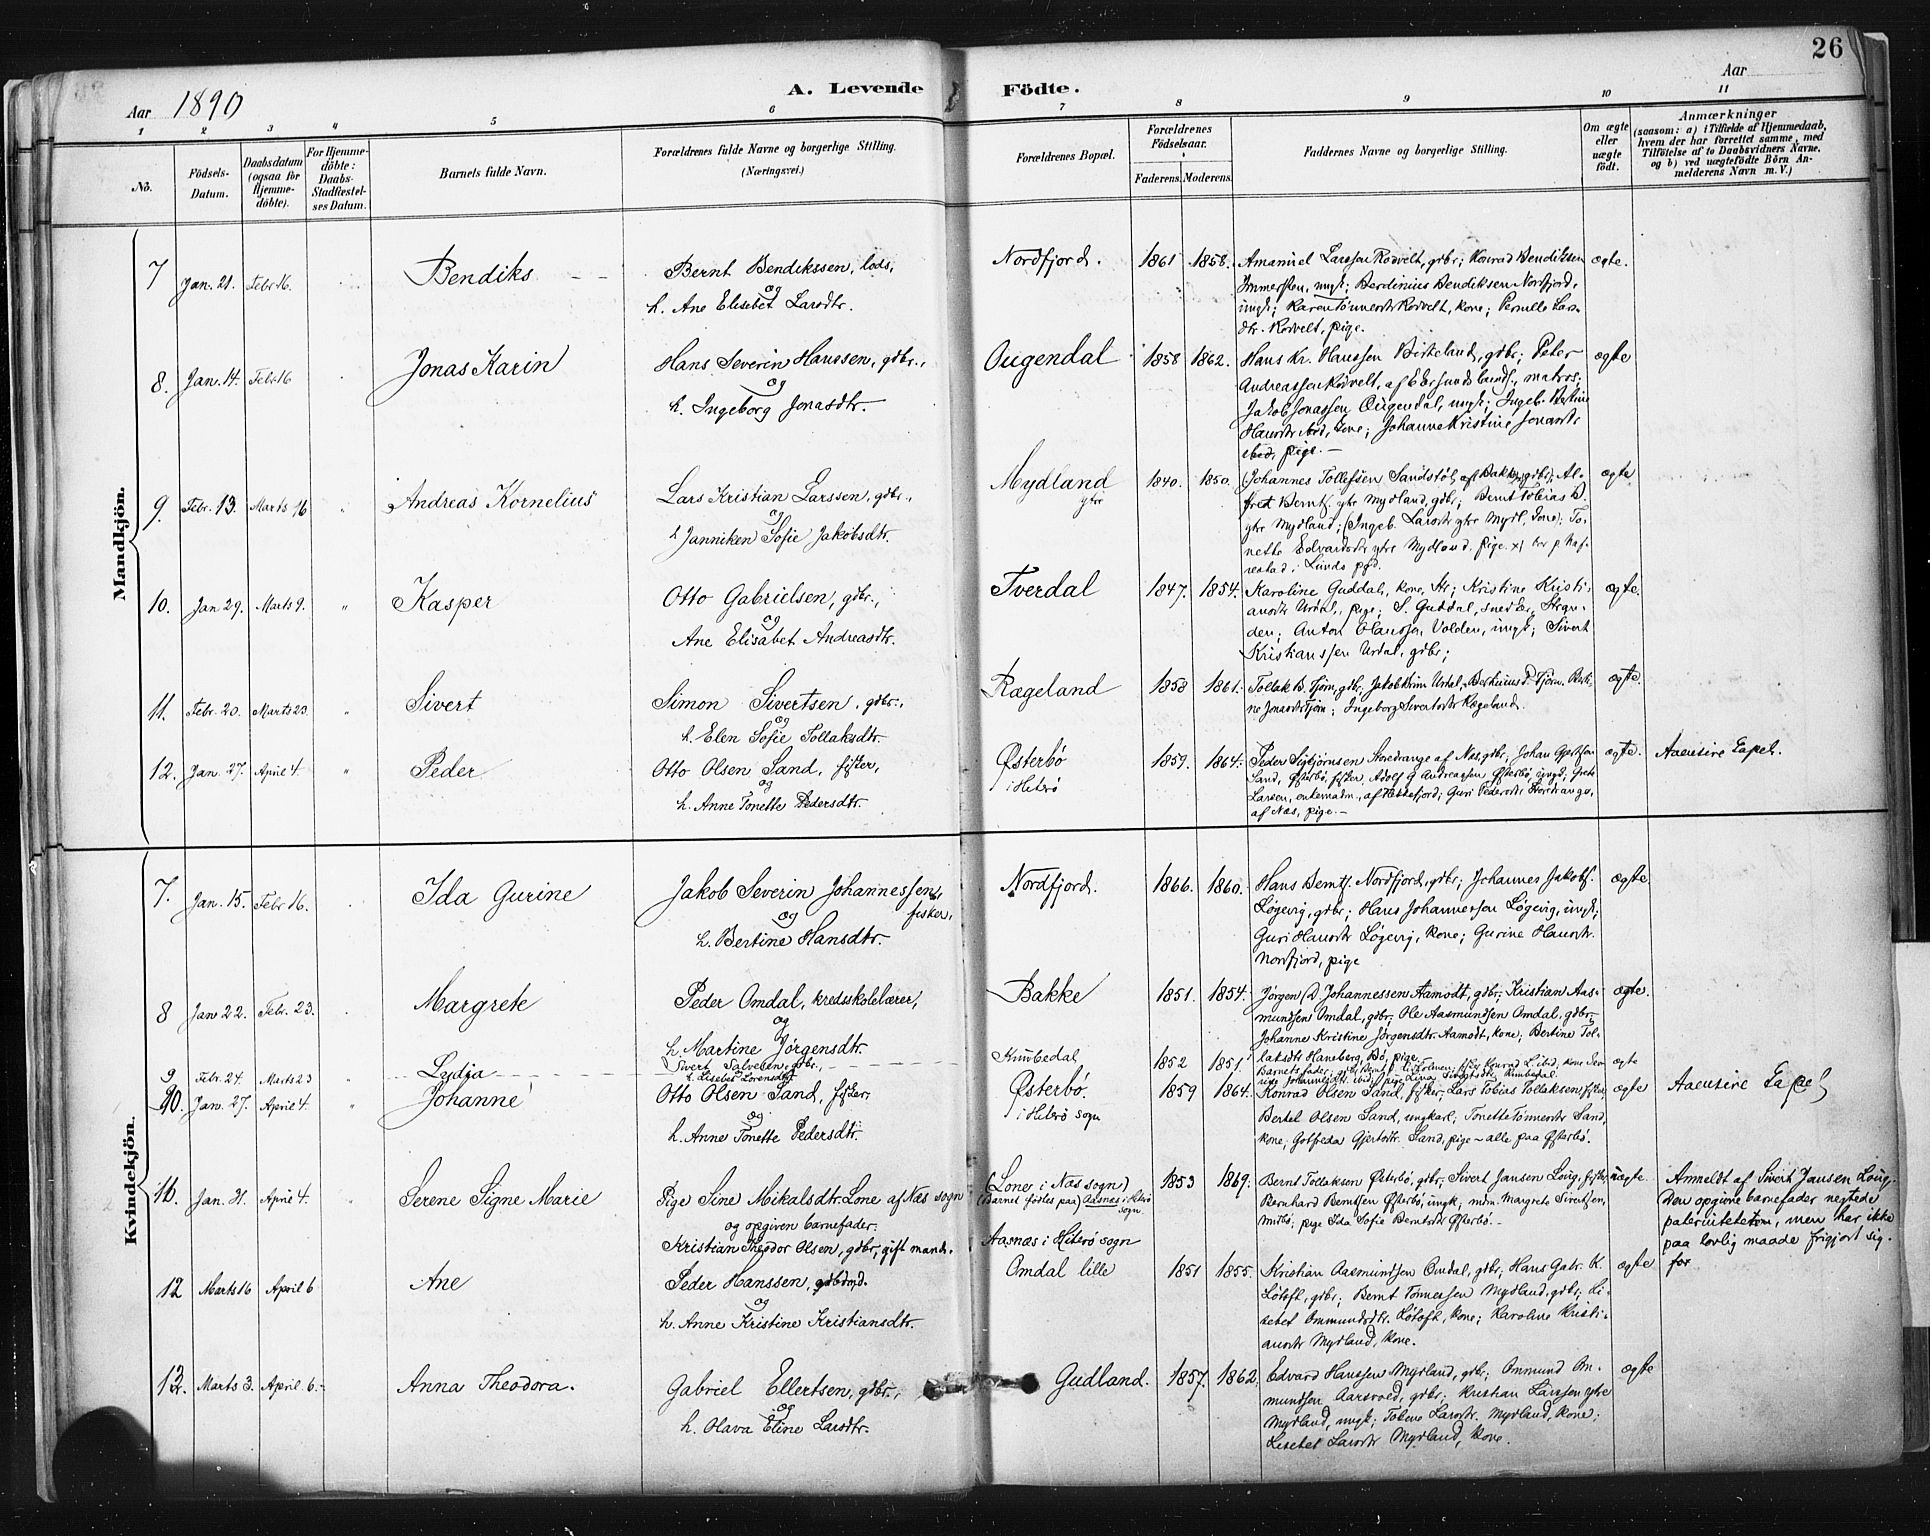 26
Aar 1890
A. Levende Födte.
Aar
1 2 3 4 5 6 7 8 9 10 11
No.
Födsels-Datum.
Daabsdatum (ogsaa for Hjemme-döbte).
For Hjemme-döbte: Daabs-Stadfæstelses Datum.
Barnets fulde Navn.
Forældrenes fulde Navne og borgerlige Stilling. (Næringsvei.)
Forældrenes Bopæl.
Forældrenes Födselsaar.
Faderens. Moderens.
Faddernes Navne og borgerlige Stilling.
Om ægte eller uægte født.
Anmærkninger
(saasom: a) i Tilfælde af Hjemmedaab,
hvem der har forrettet samme, med
Tilföielse af to Daabsvidners Navne,
og b) ved uægtefödte Börn An-
melderens Navn m. V.)
Mandkjön.
7 Jan. 21. Febr 16. Bendiks
Bernt Bendikssen, lods,
og
h. Ane Elisebet Larsdtr.
Nordfjord. 1861 1858.
Amanuel Larssen Rødvelt, gdbr; Konrad Bendiksen
ungk; Berdinius Bendiksen Nordfjord,
ungk; Karen Tønnesdtr Rødvelt, kone; Pernille Lars-
dtr. Rødvelt, pige.
ægte.
8. Jan. 14. Febr 16 Jonas Karin
Hans Severin Hanssen, gdbr.,
og
h. Ingeborg Jonasdtr.
Ougendal 1858 1862.
Hans Kr. Hanssen Birkeland, gdbr; Peter
Andreassen Rødvelt, af Ekersunds lands., matros;
Jakob Jonassen Ougendal, ungk; Ingeb. Bertine
Hansdtr ibid, kone; Johanne Kristine Jonasdtr
ibid, pige. —
ægte
9. Febr. 13. Marts 16 " Andreas Kornelius
Lars Kristian Larssen, gdbr.,
og
h Janniken Sofie Jakobsdtr.
Mydland
ytre
1840. 1850.
(Johannes Tollefsen Sandstøl, af Bakke, gdbr); Al-
fred Bernts. ytre Mydland, gdbr; Bernt Tobias B.
ytre Mydland; (Ingeb. Larsdtr ytre Mydl, kone); To-
nette Edvardsdtr ytre Mydland, pige. x) bor p
i Lunds pgd.
ægte
10. Jan 29. Marts 9. " Kasper
Otto Gabrielsen, gdbr.,
og
Ane Elisabet Andreasdtr.
Tverdal 1847. 1854.
Karoline Guddal, kone, Str; Kristine Kristi-
ansdtr Urdal, pige; S. Guddal, snedker, Stegn-
den; Anton Olaussen Volden, ungk; Sivert
Kristianssen Urdal, gdbr;
ægte.
11. Febr. 20. Marts 23. " Sivert
Simon Sivertsen, gdbr.,
og
h. Elen Sofie Tollaksdtr.
Rægeland 1858 1861.
Tollak B. Tjørn, gdbr, Jakob Urdal, Berthinius B. Tjørn. Berti-
ne Jonasdtr Tjørn; Ingeborg Sivertsdtr Rægeland.
ægte.
12. Jan. 27. April 4. " Peder
Otto Olsen Sand, fisker,
og
h. Anne Tonette Pedersdtr.
Østerbø
i Hiterø
1859. 1864.
Peder Sigbjørnsen Stordrange af Næs, gdbr, Johan Gjertsen
Sand, Østerbø, fisker, Adolf G Andreassen Østerbø, ungk; Grete
Larsen, enkemadm., af Flekkefjord; Guri Pedersdtr Stordrange,
af Næs, pige. —
ægte. Aaensire Capel.
Kvindekjön.
7. Jan. 15. Febr 16. Ida Gurine
Jakob Severin Johannessen,
fisker,
og
h. Bertine Hansdtr.
Nordfjord. 1866. 1860.
Hans Bernts. Nordfjord, gdbr; Johannes Jakobs.
Løgevig, gdbr; Hans Johannessen Løgevig, ungk;
Guri Hansdtr Løgevig, kone; Gurine Hansdtr.
Nordfjord, pige
ægte
8 Jan 22. Febr. 23. Margrete
Peder Omdal, kredsskolelærer,
og
h. Martine Jørgensdtr.
Bakke 1851. 1854.
Jørgen D. Johannessen Aamodt, gdbr, Kristian Aas-
mundsen Omdal, gdbr, Ole Aasmundsen Omdal, gdbr,
Johanne Kristine Jørgensdtr. Aamodt, kone; Bertine Tol-
laksdtr Haneberg, Bø, pige.
ægte.
9 Febr. 24. Marts 23 " Lydia
Sivert Salvesen, gdbr.,
h. Lisebet Lorensdtr.
Kumbedal 1852 1851.
Barnets fader, gdbr,
ægte
10. Jan. 27. April 4. " Johanne
Otto Olsen Sand, fisker,
og
h. Anne Tonette Pedersdtr.
Østerbø.
i Hiterø sogn
1859 1864.
Konrad Olsen Sand, fisker, Lars Tobias Tollaksen, fisker,
Bertel Olsen Sand, ungkarl, Tonette Tønnesdtr Sand,
kone; Golfreda Gjertsdtr. Sand, pige — alle paa Østerbø.
ægte Aaensire Capel
11. Jan. 31. April 4. " Serene Signe Marie
Pige Sine Mikalsdtr. Lone af Næs sogn
og opgiven barnefader:
Kristian Theodor Olsen, gdbr, gift mand.
(Lone i Næs sogn)
(Barnet fødtes paa) Aasnæs i Hiterø
sogn.
Aasnæs i Hiterø sogn
1853 1869.
Bernt Tollaksen Østerbø, gdbr, Sivert Jansen Loug, fisker,
Bernhard Berntsen Østerbø, ungk, mdm. Margrete Sivertsen,
Midbø; pige Ida Sofie Berntsdtr Østerbø. —
uægte
Anmeldt af Sivert Jansen Loug.
Den opgivne barnefader negtede
paterniteten, men har ikke
paa lovlig maade frigjort sig
for
12 Marts 16 April 6 Ane
Peder Hanssen, gdbr.
og
h. Anne Kristine Kristiansdtr.
Omdal lille 1851 1855.
Kristian Aasmundsen Omdal, gdbr; Hans Gabr. K.
Løtoft, gdbr; Bernt Tønnessen Mydland, gdbr; Li-
sebet Ommundsdtr. Løtoft, kone; Karoline Kristi-
ansdtr Mydland, kone.
ægte
13. Marts 3. April 6. Anna Theodora.
Gabriel Ellertsen, gdbr.,
og
h. Olava Eline Larsdtr.
Gudland. 1857. 1862.
Edvard Hanssen Mydland, gdbr; Ommund Om-
mundsen Aarsvold, gdbr; Kristian Larssen ytre
Mydland, ungk; Tobine Larsdtr. Mydland, kone;
Lisebet Larsdtr Mydland, kone.
ægte